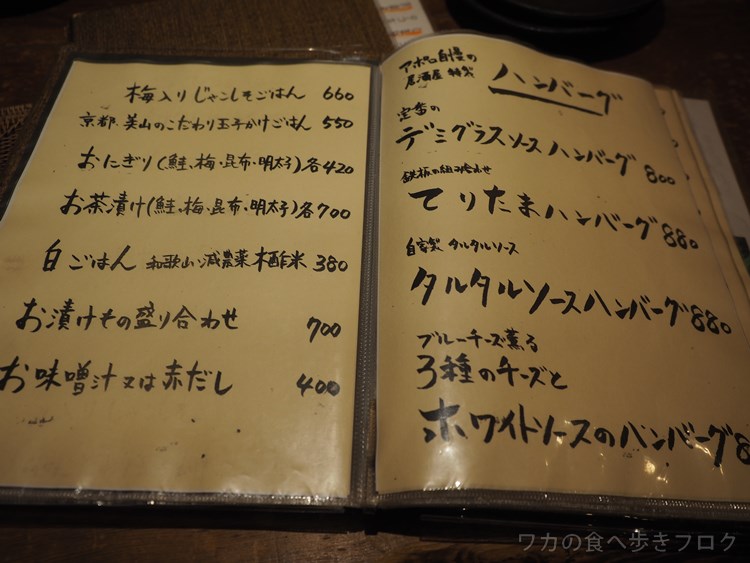 梅入りじゃこしそごはん 660
京都・美山のこだわり玉子かけごはん 550
おにぎり(鮭、梅・昆布・明太子)各420
お茶漬け(鮭、梅・昆布・明太子)各700
白ごはん 和歌山・減農薬 米 380
お漬けもの盛り合わせ 700
お味噌汁又は赤だし 400
アポロ自慢の
居酒屋 特製 ハンバーグ
定番の
デミグラスソースハンバーグ 800
鉄板の組み合わせ
てりたまハンバーグ 880
自家製 タルタルソース
タルタルソースハンバーグ 880
ブルーチーズ薫る
3種のチーズと
ホワイトソースのハンバーグ 8
ワカの食べ歩きブログ